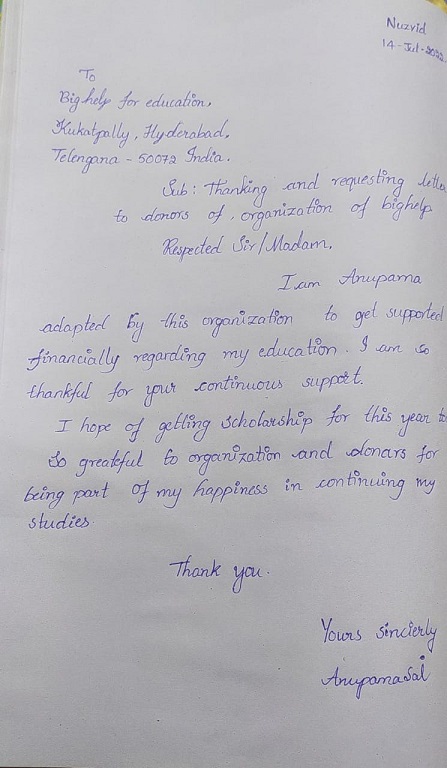 Nuzvid
14-Jul-2022.
To
Bighelp for education,
Kukatpally, Hyderabad,
Telengana - 50072 India.
Sub: Thanking and requesting lette
to donors of organization of bighelp
Respected Sir/Madam,
I am Anupama
adapted by this organization to get supported
financially regarding my education. I am so
thankful for your continuous support.
I hope of getting scholarship for this year to
so greateful to organization and donars for
being part of my happiness in continuing my
studies.
Thank you.
Yours sincierly
AnupamaSai